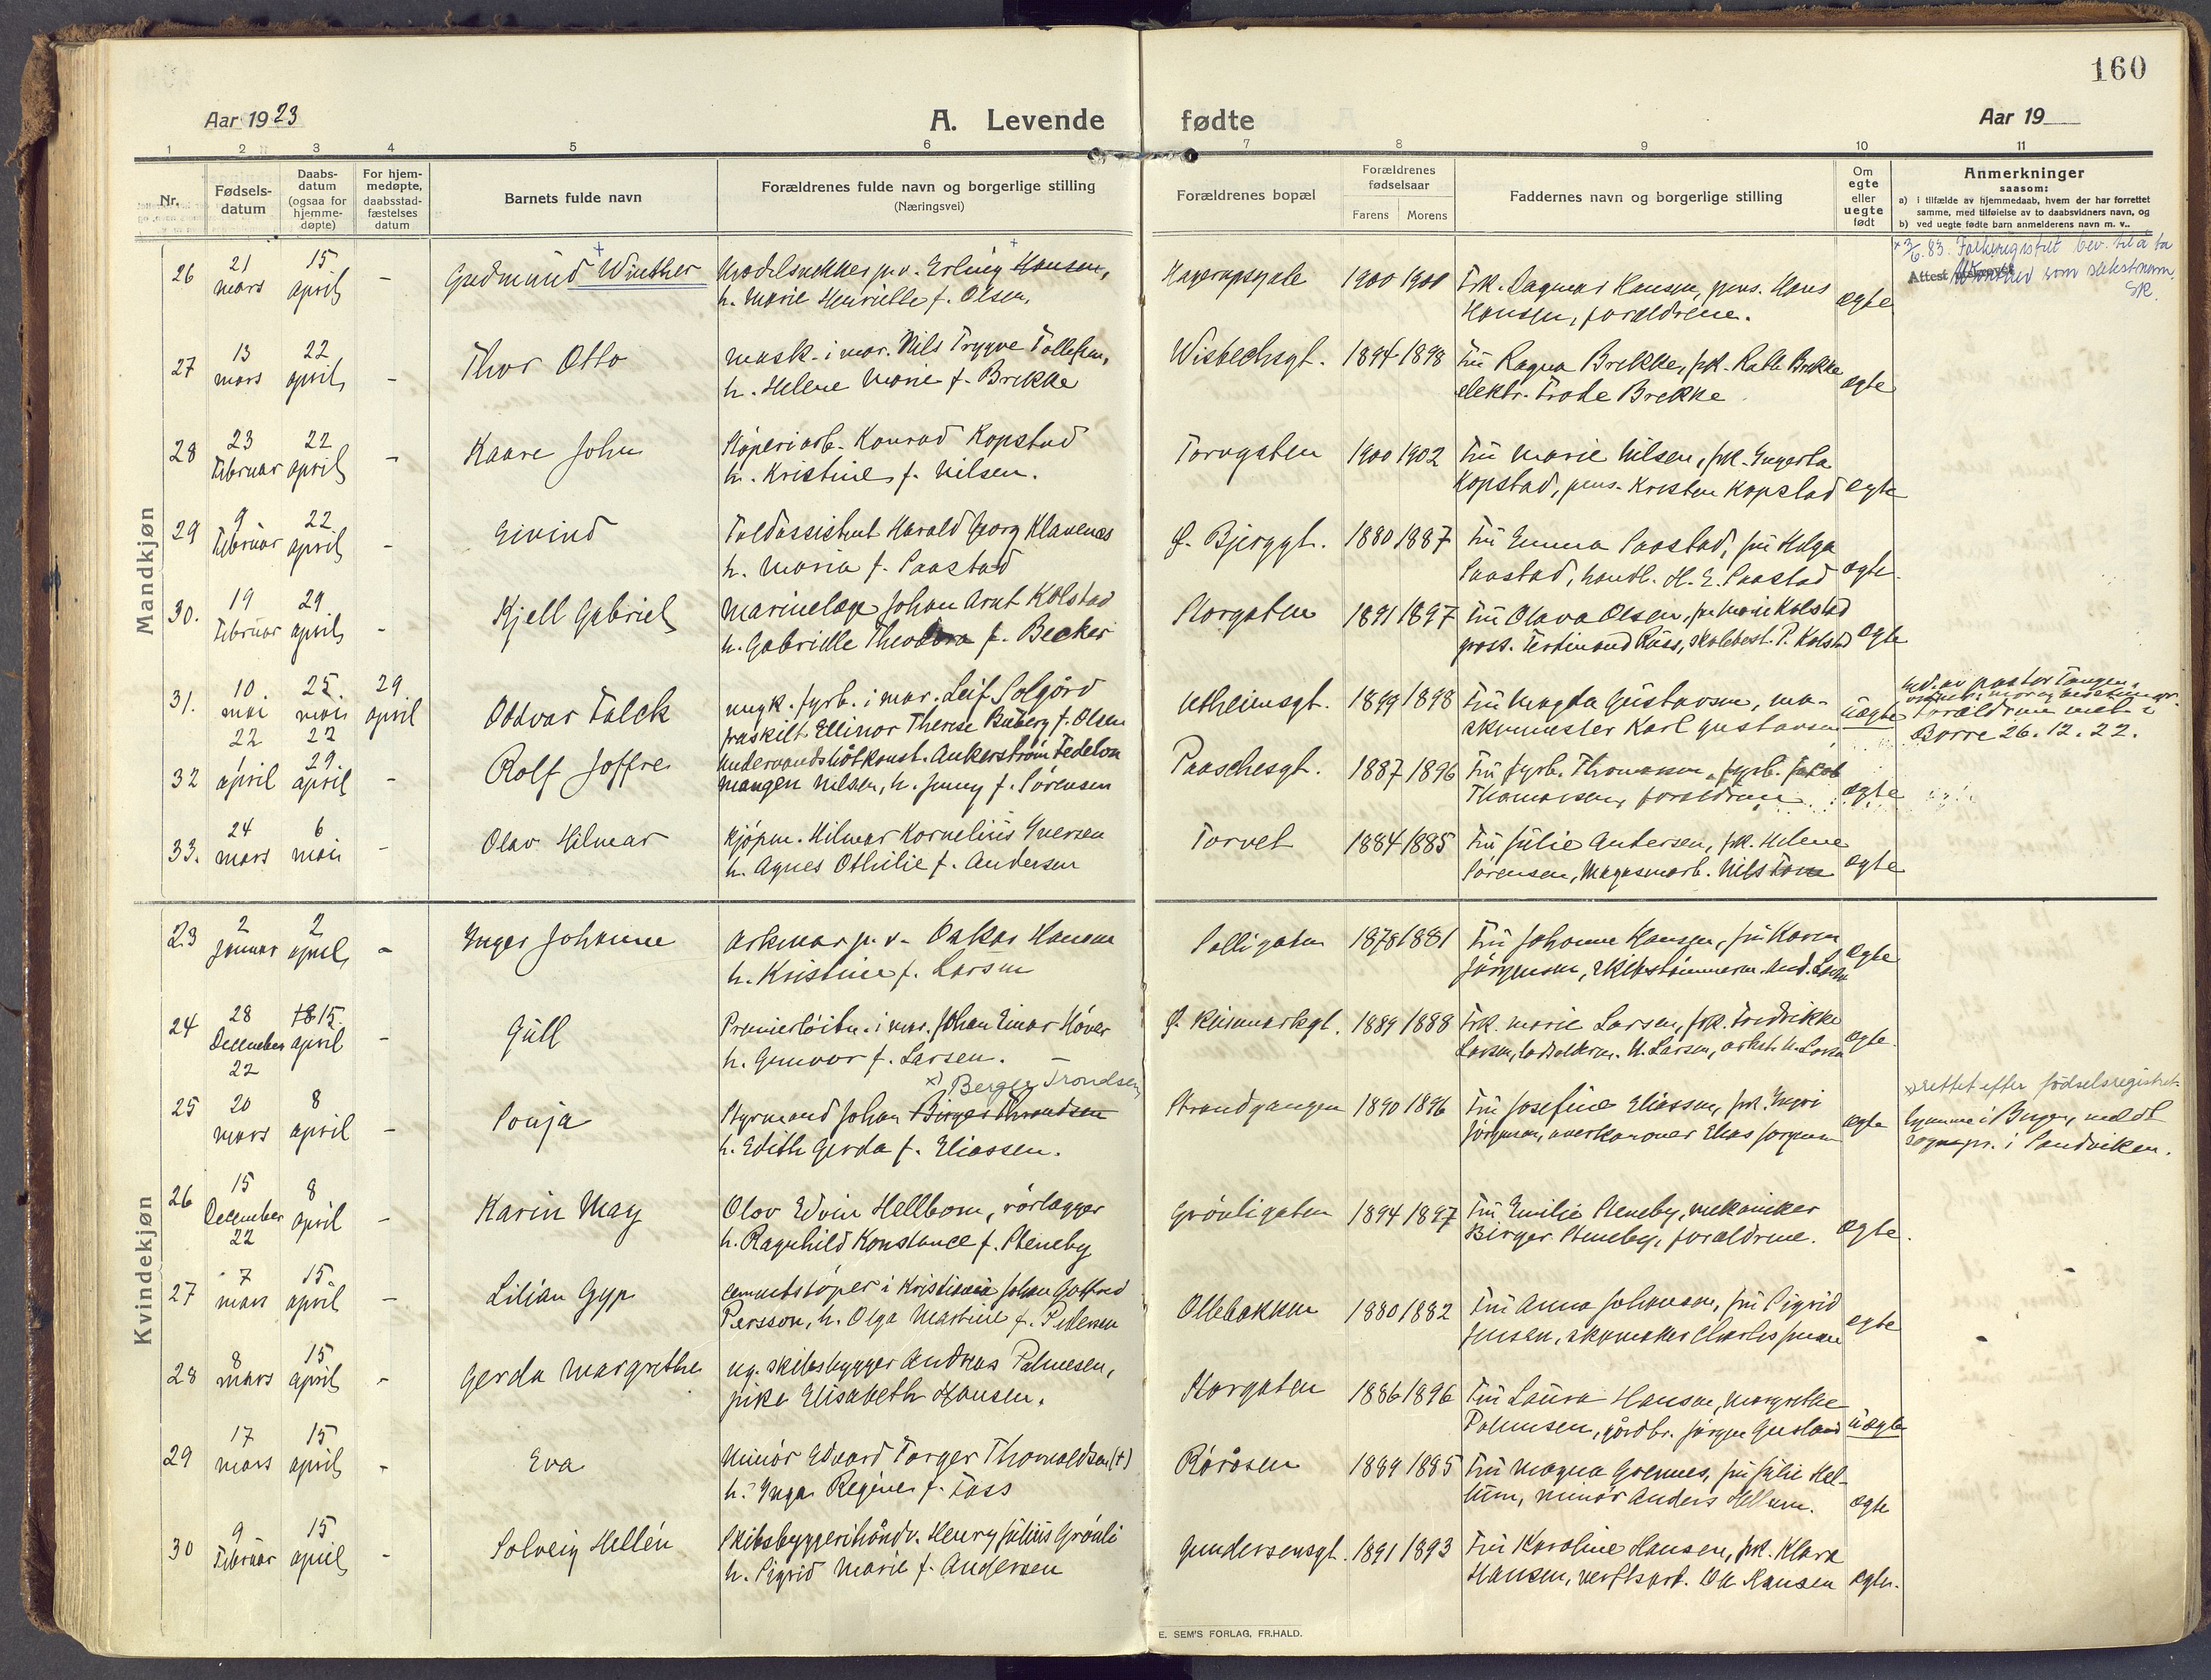 160
Aar 1923
A. Levende fødte
Aar 19
1 2 3 4 5 6 7 8 9 10 11
Nr.
Fødsels-
datum
Daabs-
datum
(ogsaa for
hjemme-
døpte)
For hjem-
medøpte,
daabsstad-
fæstelses
datum
Barnets fulde navn
Forældrenes fulde navn og borgerlige stilling
(Næringsvei)
Forældrenes bopæl
Forældrenes
fødselsaar
Farens Morens
Faddernes navn og borgerlige stilling
Om
egte
eller
uegte
født
Anmerkninger
saasom:
a) i tilfælde av hjemmedaab, hvem der har forrettet
samme, med tilføielse av to daabsvidners navn, og
b) ved uegte fødte barn anmelderens navn m. v..
Mandkjøn
26 21 mars 15 april - Gudmund Winther
Modelsnekker p.v. Erling Hansen,
h. Marie Henriette f. Olsen.
1900 1900
Frk. Dagmar Hansen, pens. Hans
Hansen, forældrene.
ægte
x 3/6.83. Folkeregistret bev. til å ta
Attest som slektsnavn.
SK.
27 13 mars 22 april - Thor Otto
mask. i mar. Nils Trygve Tollefsen,
h. Helene Marie f. Brekke
Wisbechsgt. 1894 1898
Fru Ragna Brekke, frk. Brekke
elektr. Frode Brekke
ægte
28 23 Februar 22 april - Kaare John
Støperiarb. Konrad Kopstad
h. Kristine f. Nilsen.
Torvgaten 1900 1902
Fru Marie Nilsen, frk. Ingerta
Kopstad, pens. Kristen Kopstad
ægte
29 9 Februar 22 april - Eivind
Toldassistent Harald Georg Klavenes
h. Maria f. Paastad
Ø. Bjerggt. 1880 1887
Fru Emma Paastad, fru Helga
Paastad, handl. H. E. Paastad
ægte.
30. 19 Februar 29 april - Kjell Gabriel
Marinelæge Johan Arnt Kolstad
h. Gabrielle Theodora f. Becker
Storgaten 1891 1897
Fru Olava Olsen, fru Marie Kolstad
gross. Ferdinand Russ, skolebest. P. Kolstad
ægte
31. 10. mai 22 25. mai 22 29. april Oddvar Falck
ungk. fyrb. i mar. Leif Solgård
fraskilt Ellinor Therese f. Olsen
1899 1898
Fru Magda Gustavsen, ma-
skinmester Karl Gustavsen
uægte
pastor Tangen.
Forældrene viet i
Borre 26.12.22.
32 1 april 29. april - Rolf Joffre
Undervandsbåtkonst. Ankerstrøm Fedelon
Mangen Nilsen, h. Jenny f. Sørensen
Paaschesgt. 1887 1896
Fru fyrb. Thomassen, fyrb. Jakob
Thomassen, forældrene
ægte
33. 24 mars 6 mai - Olav Hilmar
Kjøpm. Hilmar Kornelius Iversen
h. Agnes Othilie f. Andersen
Torvet 1884 1885
Fru Julie Andersen, frk. Helene
Sørensen, Magasinarb. Nils
ægte
Kvindekjøn
23 2 Januar 2 april - Inger Johanne
Arkmar p.v. Oskar Hansen
h. Kristine f. Larsen
1878 1881
Fru Johanne Hansen, fru Karen
Jørgensen, skibstømmerm. And. Larsen
ægte
24 28 December 22 15. april - Gull
Premierløitn. i mar. Johan Einar Høver
h. Gunvor f. Larsen.
1889 1888
Frk. Marie Larsen, frk. Fredrikke
Larsen, lodsolderm. H. Larsen, arkit. H. Larsen
ægte.
25 20 mars 8 april - Sonja
x) Berger Trondsen
Styrmand Johan Birger Throndsen
h. Edith Gerda f. Eliassen.
Strandgangen 1890 1896
Fru Josefine Eliassen, frk. Ingri
Jørgensen, overkanoner Elias Jørgensen
ægte
x) rettet efter fødselsregistret.
hjemme i Bergen, meldt
sognepr. i Sandviken.
26 15 December 22 8 april - Karin May
Olov Edvin Hellbom, rørlægger
h. Ragnhild Konstance f. Steneby
Grønligaten 1894 1897
Fru Emilie Steneby, mekaniker
Birger Steneby, forældrene.
ægte.
27 7 mars 15 april - Lilian Gyp
cementstøper i Kristiania Johan Gotfred
Persson, h. Olga Martine f. Pedersen
Ollebakken 1880 1882
Fru Anna Johansen, fru Sigrid
Jensen, skomaker Charles Jensen
ægte
28 8 mars 15 april - Gerda Margrethe
ug. skibsbygger Andreas Palmesen,
pike Elisabeth Hansen.
Storgaten 1886 1896
Fru Laura Hansen, Margrethe
Palmesen, gårdbr. Jørgen
uægte
29 17 mars 15 april - Eva
Minør Edvard Torger Thorvaldsen (+)
h. Inga Regine f. Foss
Råråsen 1889 1885
Fru Magna Grennes, fru Julie Hel-
lum, minør Anders Hellum.
ægte
30 9 Februar 15 april - Solveig Hellén
Skibsbyggerihåndv. Henry Julius Grønli
h. Sigrid Marie f. Andersen
Gundersensgt. 1891 1893
Fru Karoline Hansen, frk. Klara
Hansen, verftsarb. Hansen
ægte.
E. SEM'S FORLAG, FR.HALD.